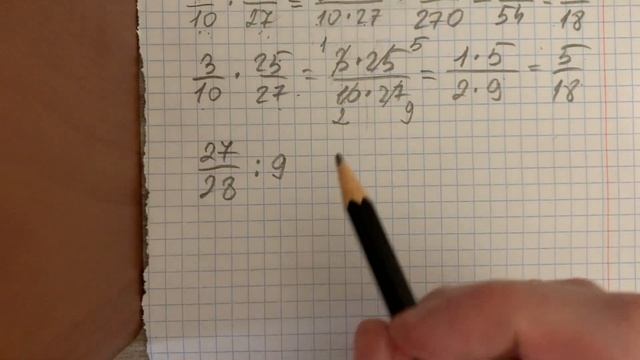 10 · 27 = 10·27 270 54 18
3/10 · 25/27 = 3·25/10·27 = 1·5/2·9 = 5/18
1 5
2 9
27/28 : 9